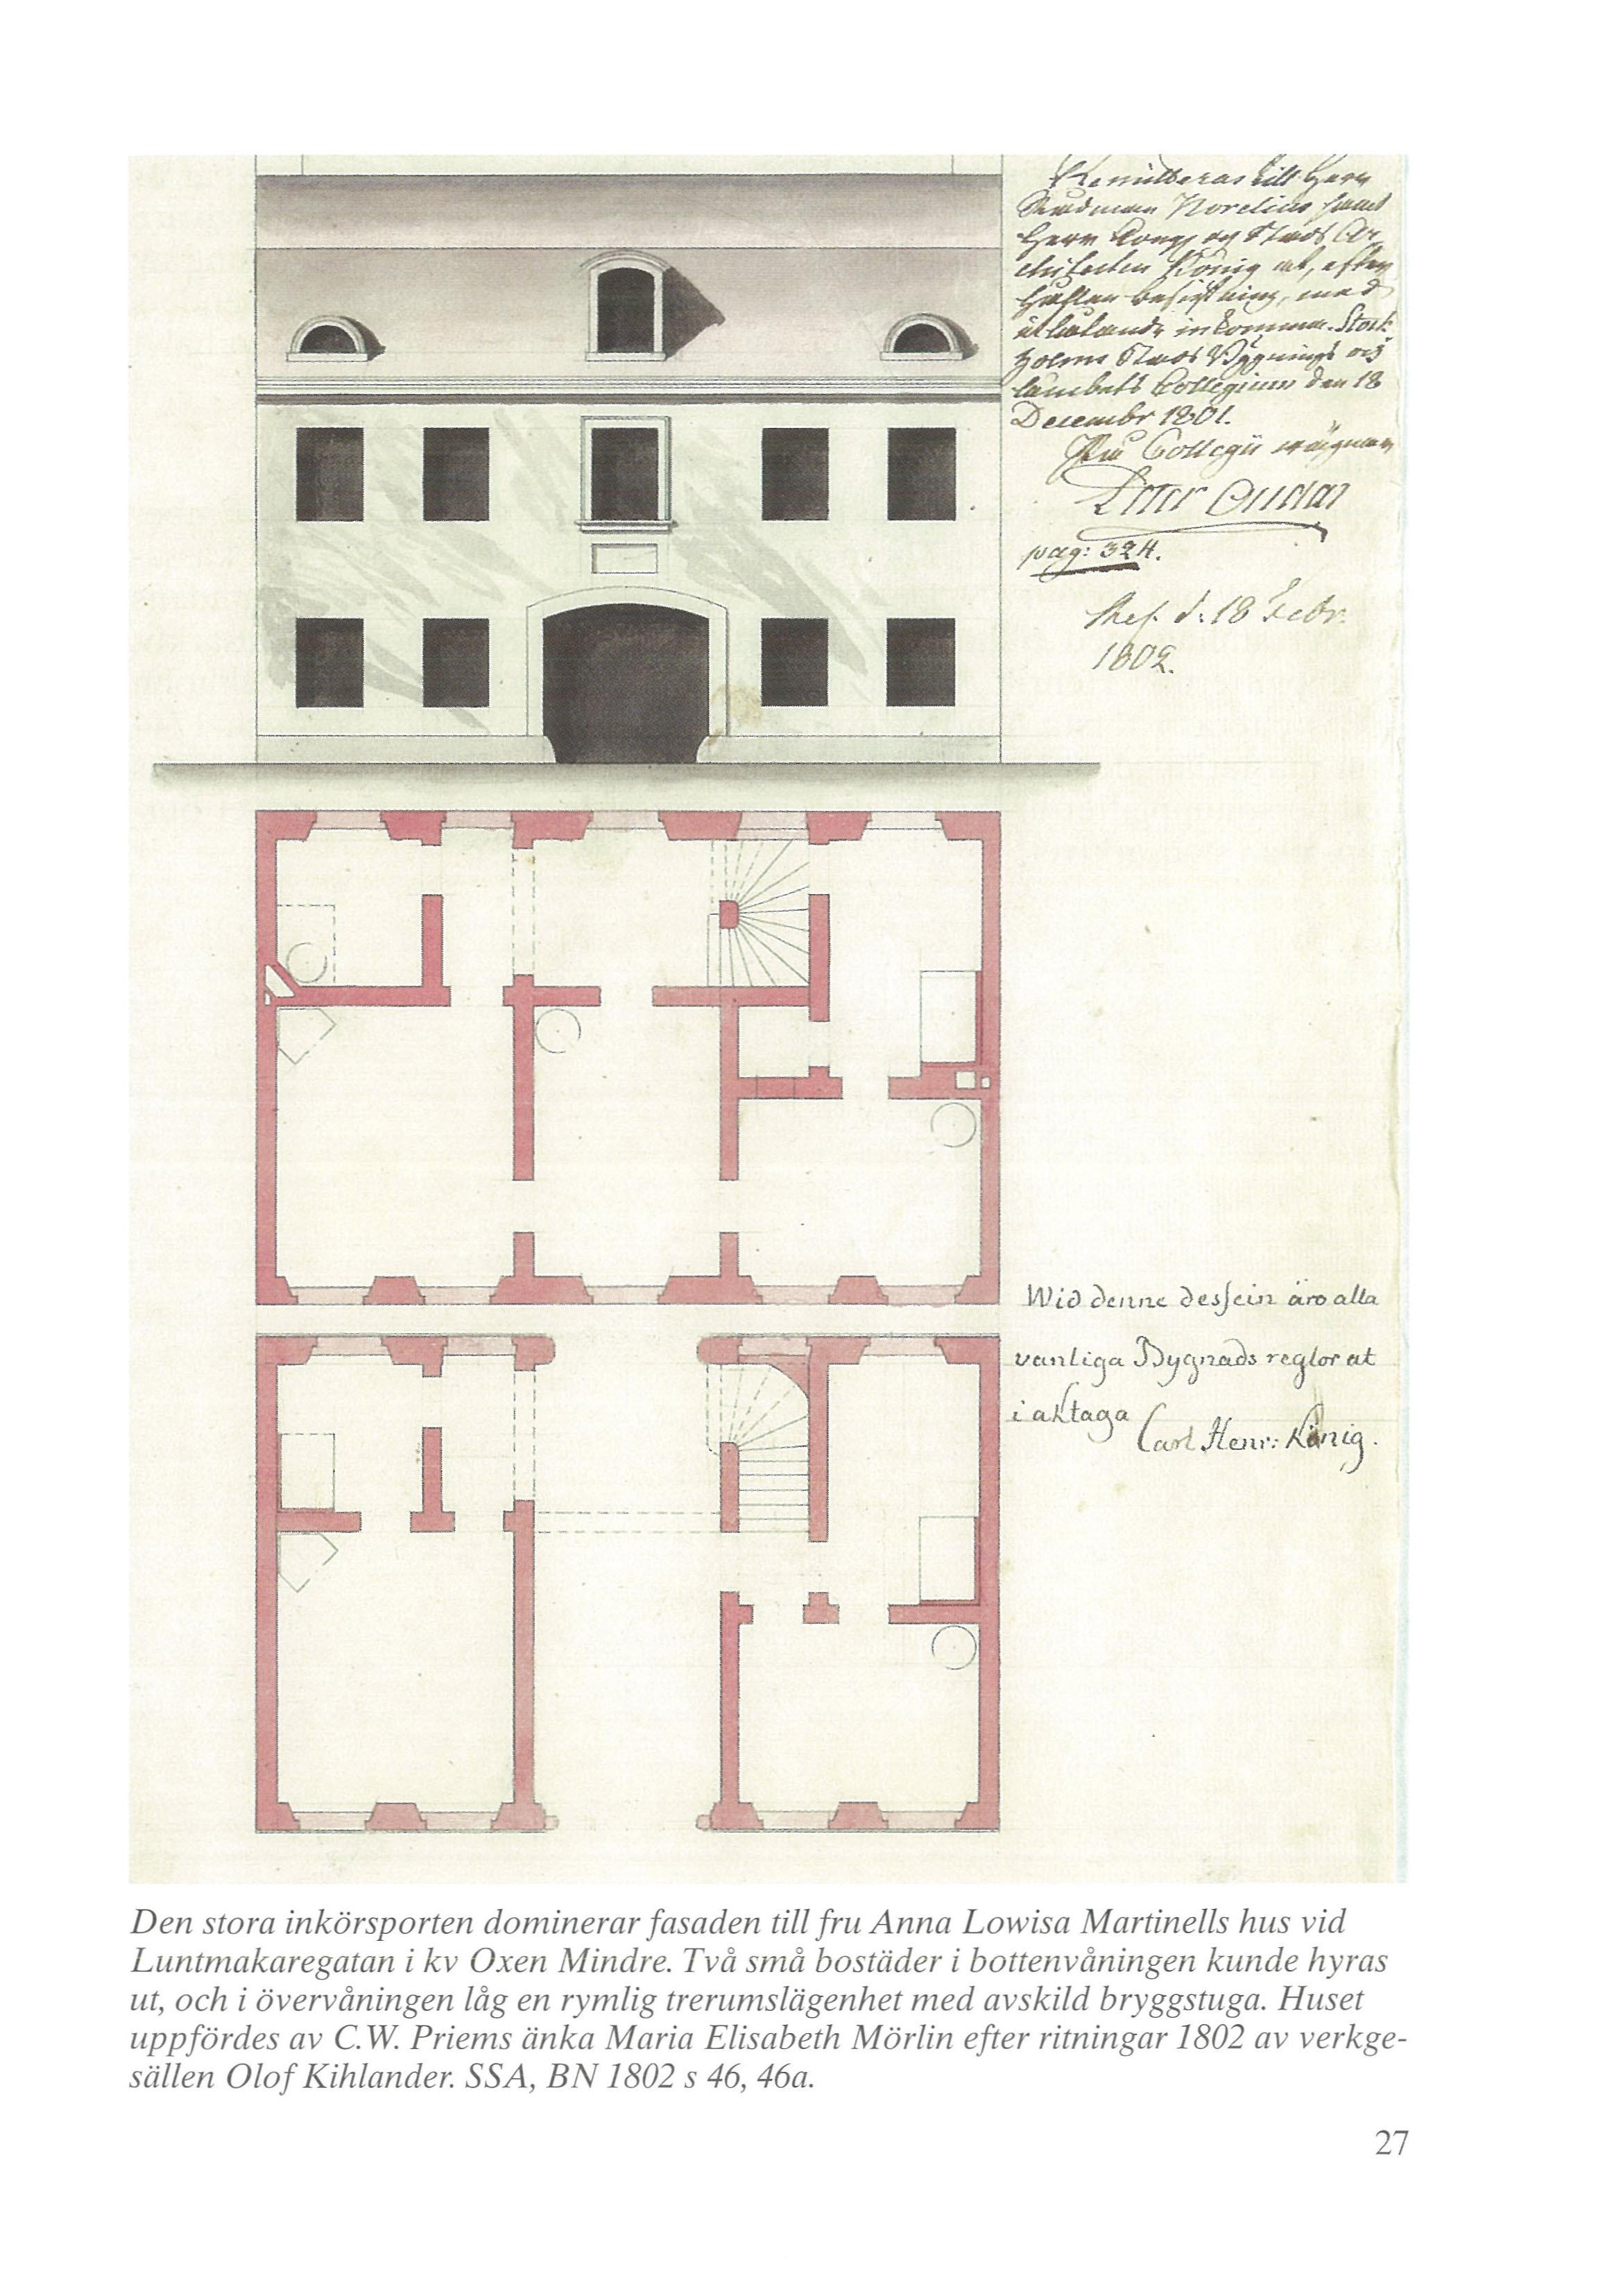 Remitteras till Herr
Rådman Norelius samt
Herr Kongl och Stads Ar
chitecten König at, efter
hållen besigtning, med
utlåtande inkomma. Stock
holms Stads Byggnings och
Ämbets Collegium den 18
Decembr 1801.
På Collegii wägnar
pag: 324.
d: 18 Febr.
1802.
Wid denne dessein äro alla
vanliga Bygnads reglor at
i akttaga
Carl Henr: König.
Den stora inkörsporten dominerar fasaden till fru Anna Lowisa Martinells hus vid
Luntmakaregatan i kv Oxen Mindre. Två små bostäder i bottenvåningen kunde hyras
ut, och i övervåningen låg en rymlig trerumslägenhet med avskild bryggstuga. Huset
uppfördes av C.W. Priems änka Maria Elisabeth Mörlin efter ritningar 1802 av verkge-
sällen Olof Kihlander. SSA, BN 1802 s 46, 46a.
27